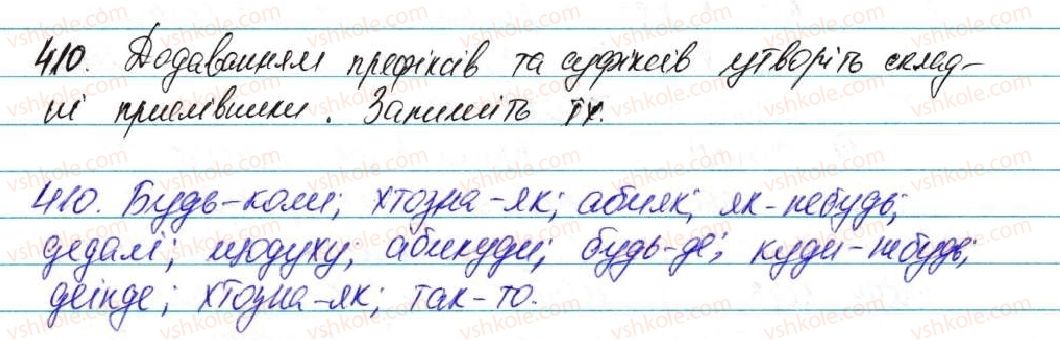 410. Додаванням префіксів та суфіксів утворіть склад-
ні прислівники. Запишіть їх.
410. Будь-коли; хтозна-як; абияк; як-небудь;
дедалі; щодуху; абикуди; будь-де; куди-небудь;
деінде; хтозна-як; так-то.